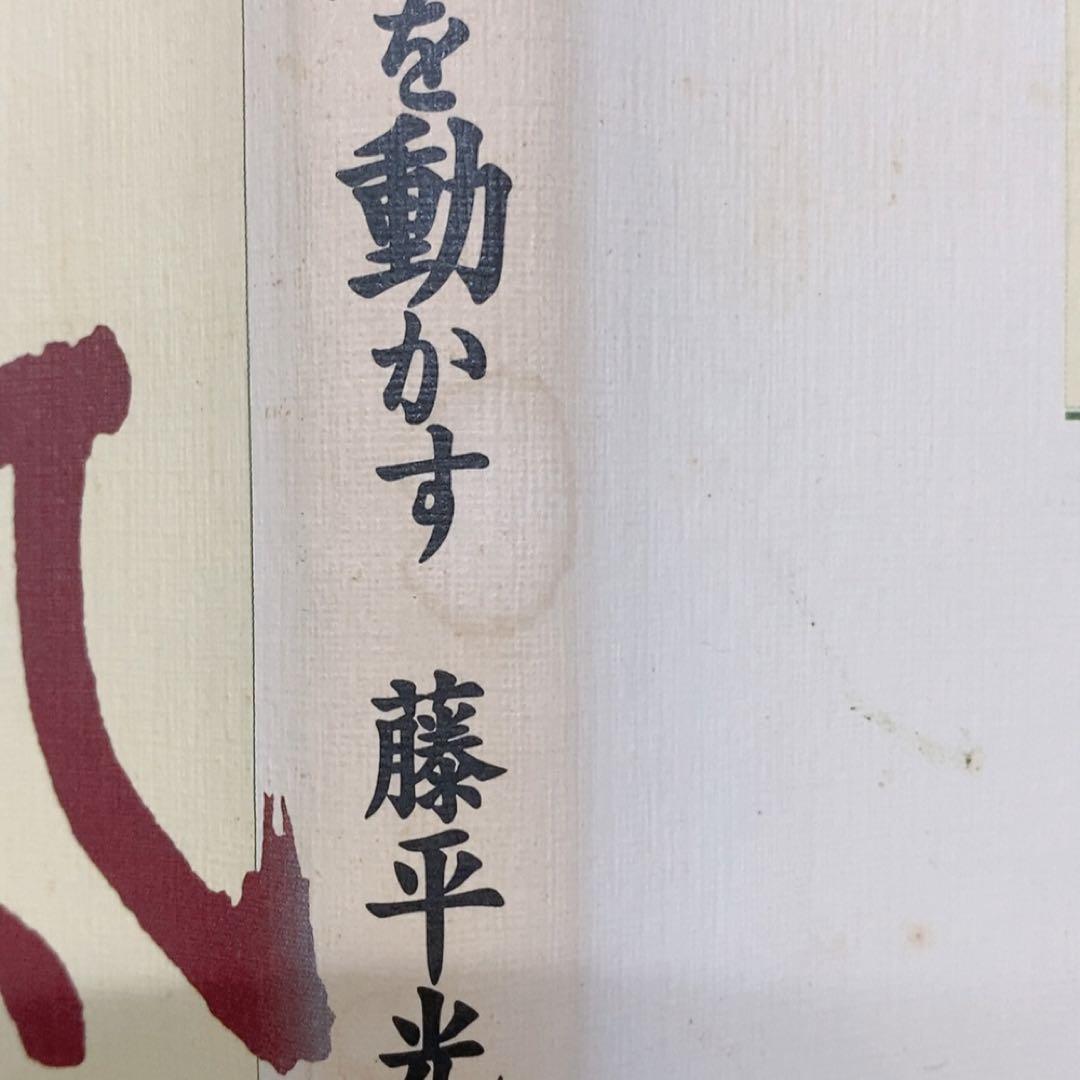 を動かす 藤平光